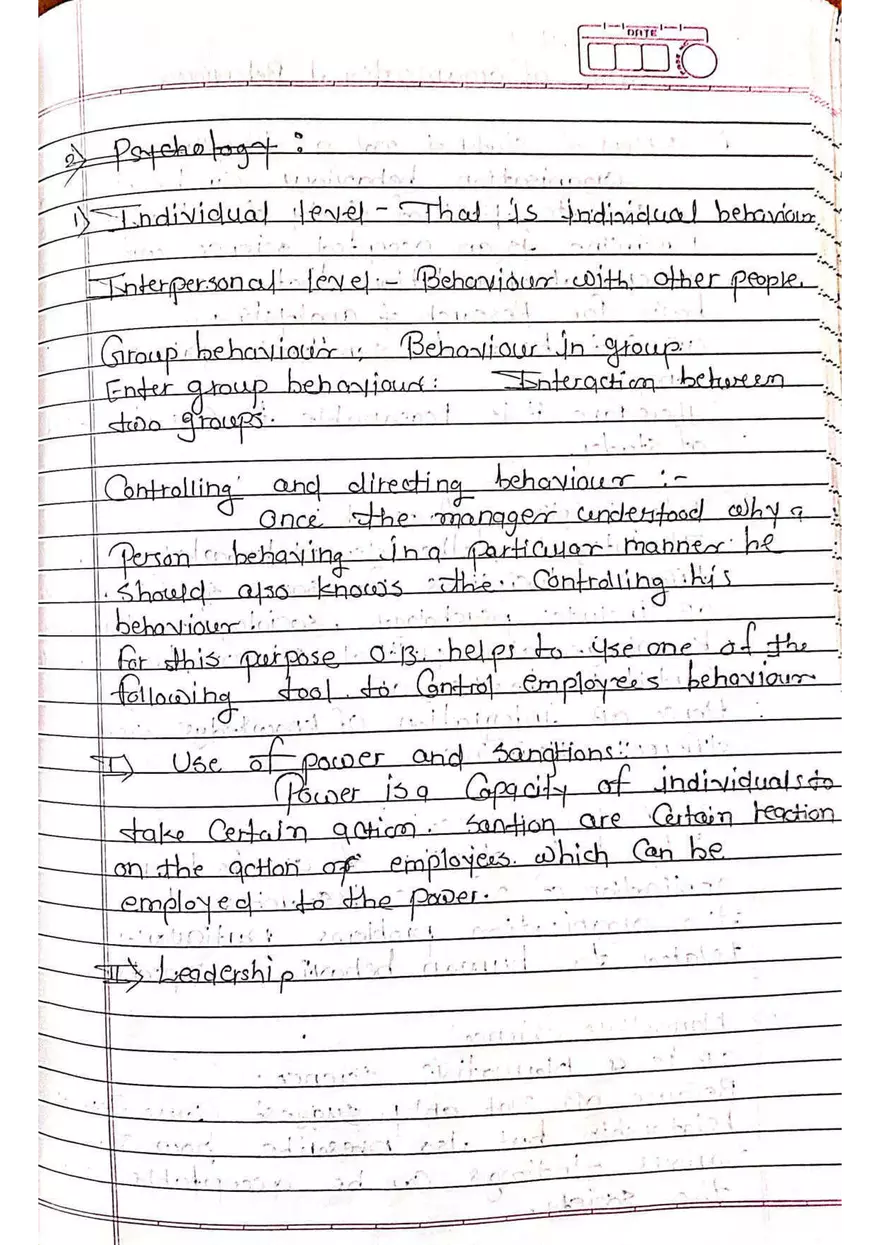 DATE
2) Psychology :
1) Individual level - That is individual behaviour
Interpersonal level - Behaviour with other people.
Group behaviour : Behaviour in group.
Enter group behaviour : Interaction between
two groups.
Controlling and directing behaviour :-
Once the manager understood why a
person behaving in a particular manner he
should also knows the controlling his
behaviour.
for this purpose O.B. helps to use one of the
following tool to Control employee's behaviour
I) Use of power and sanctions :
Power is a Capacity of individuals to
take Certain action. Santion are Certain reaction
on the action of employees which Can be
employed to the power.
II) Leadership